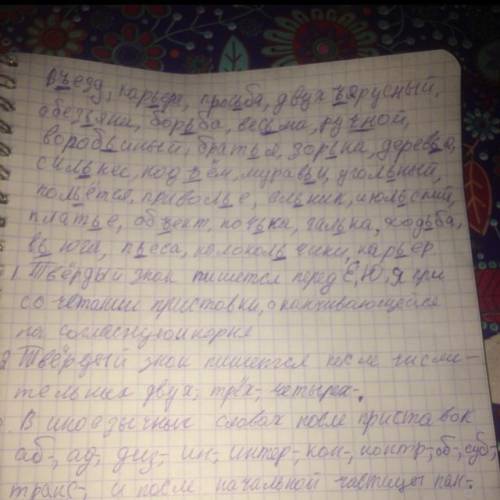 въезд, карьера, просьба, двухъярусный,
обезьяна, борьба, весьма, ручной,
воробьиный, братья, зорька, деревья,
сильнее, подъём, муравьи, угольный,
польётся, приволье, ельник, июльский,
платье, объект, почька, галька, ходьба,
вьюга, пьеса, колокольчики, карьер
1 Твёрдый знак пишется перед Е, Ю, Я при
сочетании приставки, оканчивающейся
на согласную и корня
2 Твёрдый знак пишется после числи-
тельных двух-, трёх-, четырех-.
В иноязычных словах после приставок
аб-, ад-, диз-, ин-, интер-, кон-, контр-, об-, суб-,
транс-, и после начальной частицы пан-.